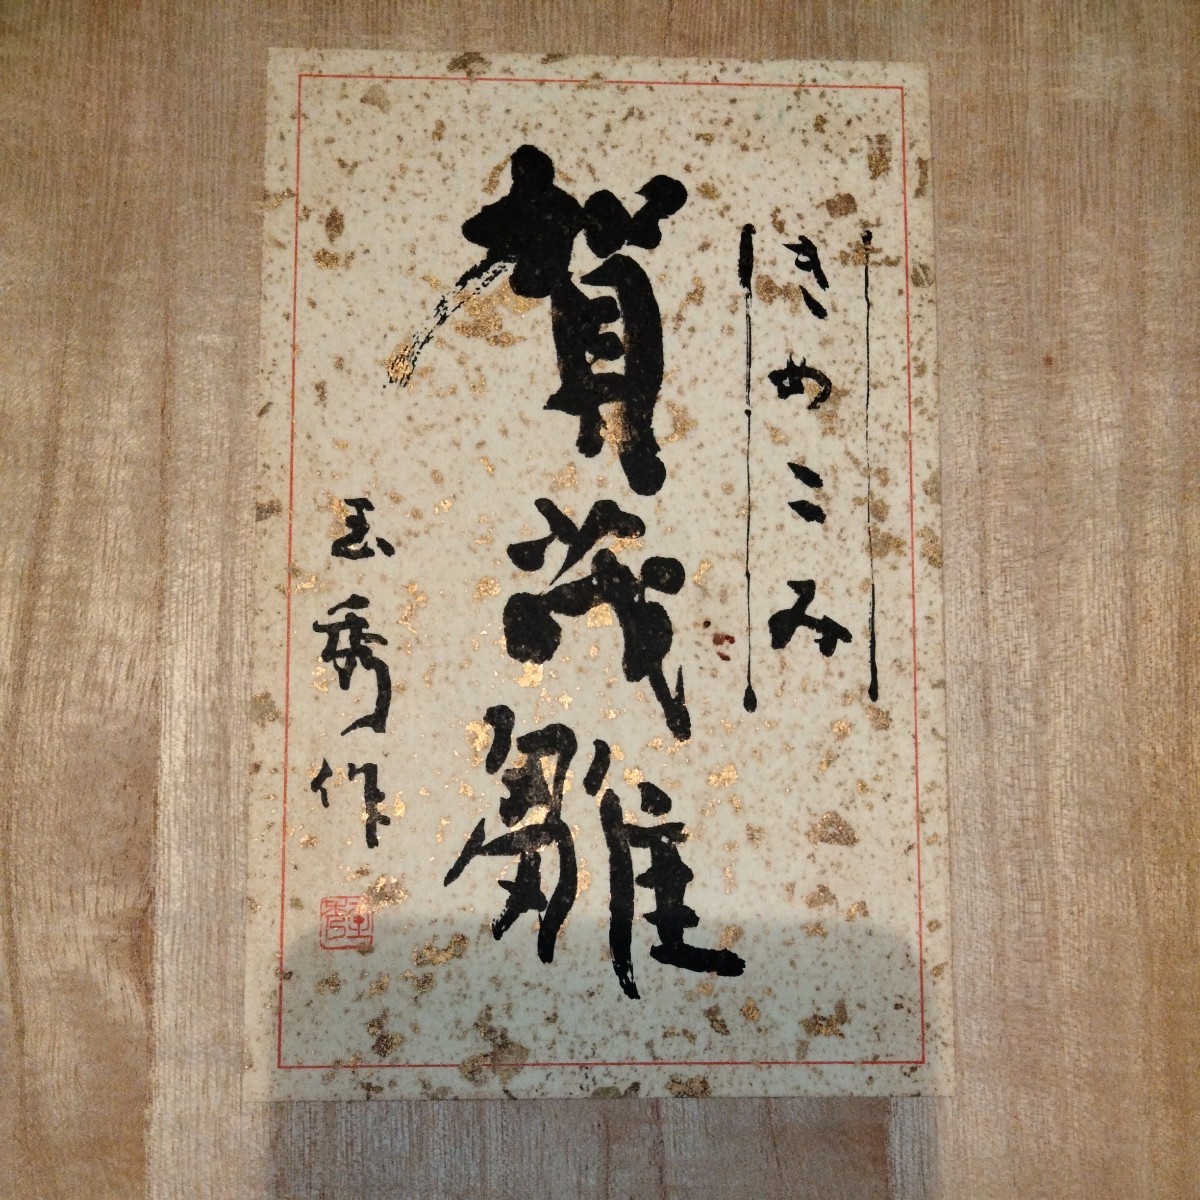 きめこみ
賀茂雛
玉秀作